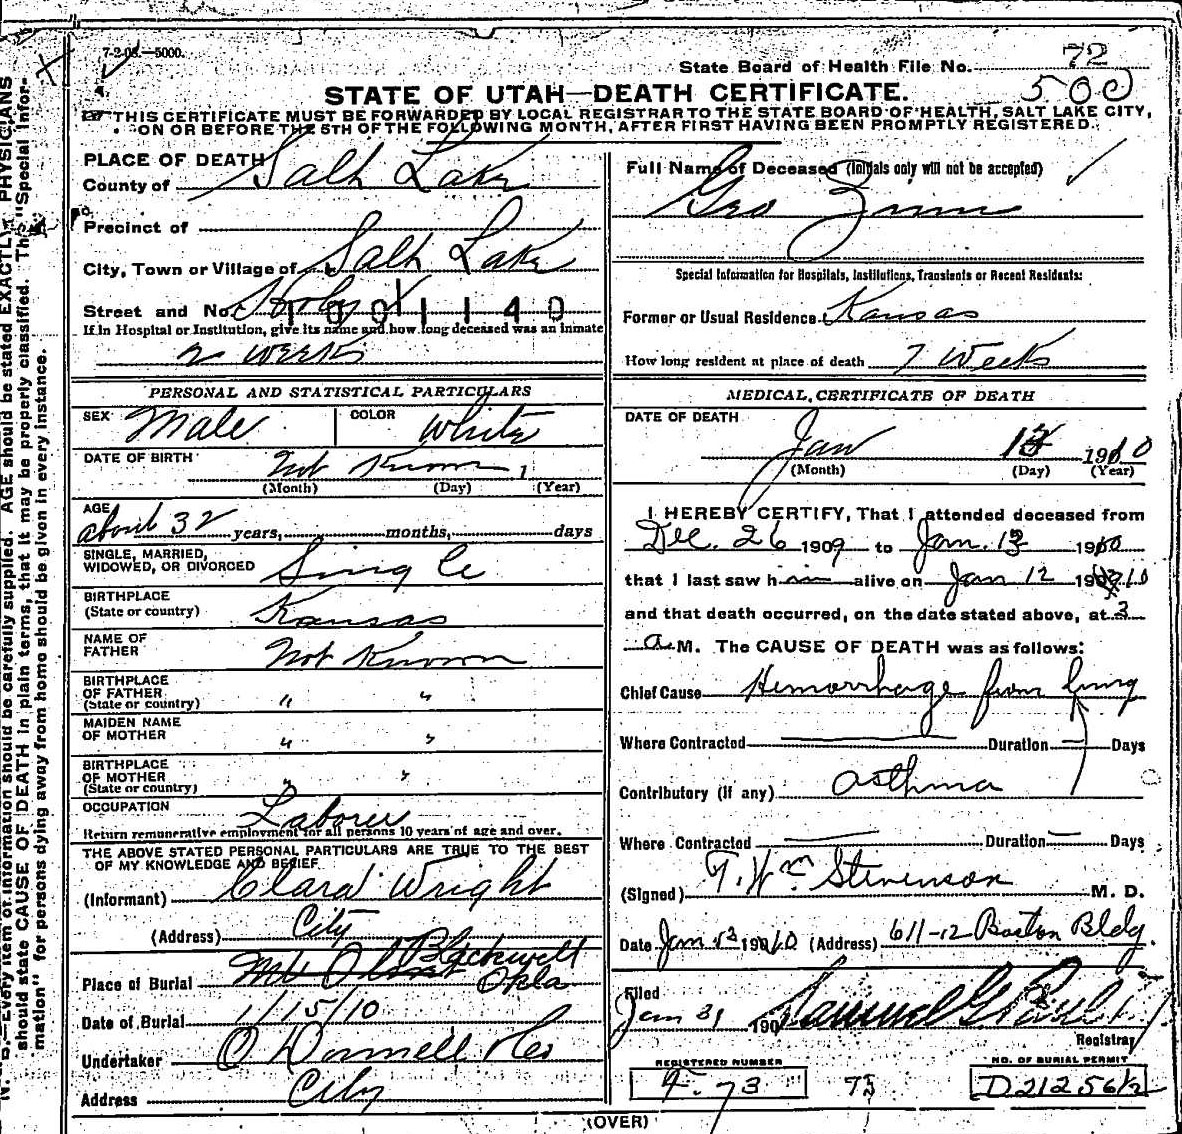 7-2-08.—5000.
State Board of Health File No. 72
500
STATE OF UTAH—DEATH CERTIFICATE.
THIS CERTIFICATE MUST BE FORWARDED BY LOCAL REGISTRAR TO THE STATE BOARD OF HEALTH, SALT LAKE CITY,
ON OR BEFORE THE 5TH OF THE FOLLOWING MONTH, AFTER FIRST HAVING BEEN PROMPTLY REGISTERED.
PLACE OF DEATH
County of Salt Lake
Precinct of
City, Town or Village of Salt Lake
Street and No.
1001140
If in Hospital or Institution, give its name and how long deceased was an inmate
2 weeks
Full Name of Deceased (Initials only will not be accepted)
Geo Zinn
Special Information for Hospitals, Institutions, Transients or Recent Residents:
Former or Usual Residence Kansas
How long resident at place of death 7 Weeks
PERSONAL AND STATISTICAL PARTICULARS
SEX Male COLOR White
DATE OF BIRTH Not Known 1
(Month) (Day) (Year)
AGE
about 32 years, months, days
SINGLE, MARRIED,
WIDOWED, OR DIVORCED Single
BIRTHPLACE
(State or country) Kansas
NAME OF
FATHER Not Known
BIRTHPLACE
OF FATHER
(State or country) " "
MAIDEN NAME
OF MOTHER " "
BIRTHPLACE
OF MOTHER
(State or country) " "
OCCUPATION Laborer
Return remunerative employment for all persons 10 years of age and over.
THE ABOVE STATED PERSONAL PARTICULARS ARE TRUE TO THE BEST
OF MY KNOWLEDGE AND BELIEF.
(Informant) Clara Wright
(Address) City
Place of Burial Mt Olivet Blackwell
Okla
Date of Burial 1/15/10
Undertaker O'Donnell & Co
Address City
MEDICAL CERTIFICATE OF DEATH
DATE OF DEATH
Jan 13 1910
(Month) (Day) (Year)
I HEREBY CERTIFY, That I attended deceased from
Dec. 26 1909 to Jan. 13 1910
that I last saw him alive on Jan 12 1910
and that death occurred, on the date stated above, at 3
a M. The CAUSE OF DEATH was as follows:
Chief Cause Hemorrhage from lung
Where Contracted Duration — Days
Contributory (if any) asthma
Where Contracted Duration — Days
(Signed) T. Wm Stevenson M. D.
Date Jan 13 1910 (Address) 611-12 Boston Bldg.
Filed
Jan 31 190 Samuel G. Paul
Registrar
REGISTERED NUMBER
73
75
NO. OF BURIAL PERMIT
D21256½
(OVER)
N. B.—Every item of information should be carefully supplied. AGE should be stated EXACTLY. PHYSICIANS
should state CAUSE OF DEATH in plain terms, that it may be properly classified. The "Special Infor-
mation" for persons dying away from home should be given in every instance.